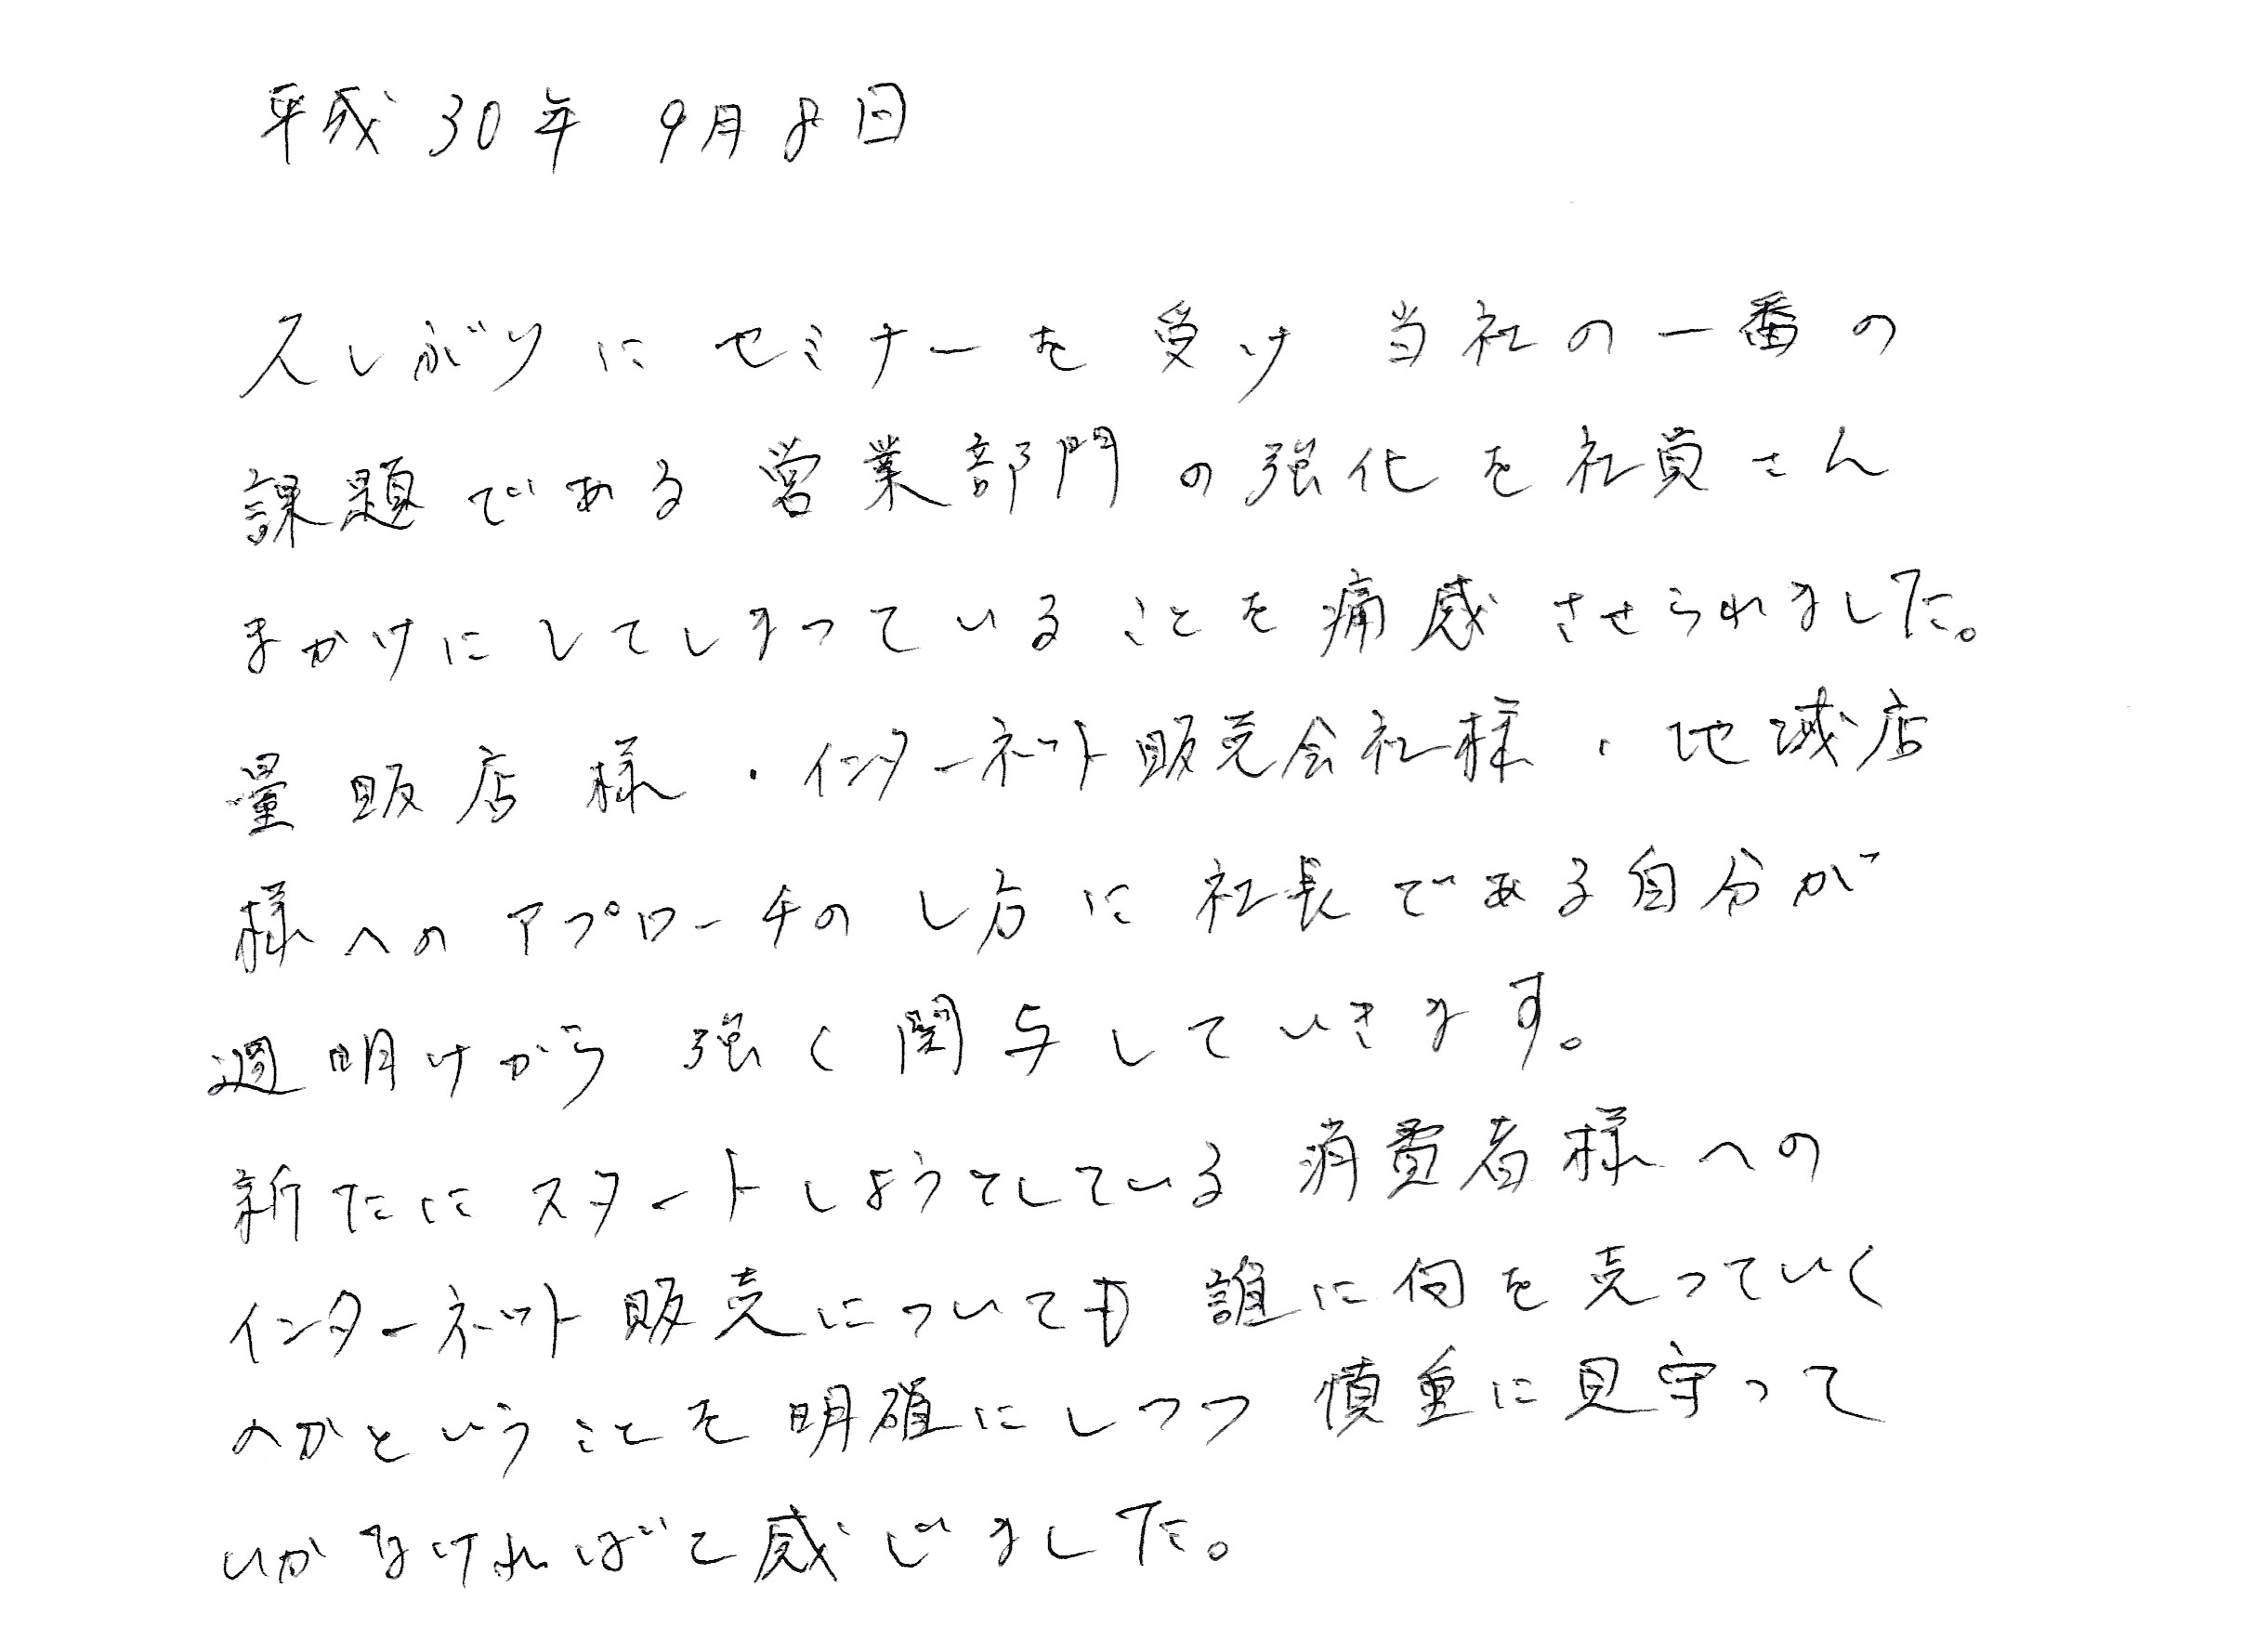 平成30年 9月8日
久しぶりにセミナーを受け当社の一番の
課題である営業部門の強化を社員さん
まかけにしてしまっていることを痛感させられました。
量販店様・インターネット販売会社様・地域店
様へのアプローチのし方に社長である自分が
週明けから強く関与していきます。
新たにスタートしようとしている消費者様への
インターネット販売についても誰に何を売っていく
のかということを明確にしつつ慎重に見守って
いかなければと感じました。